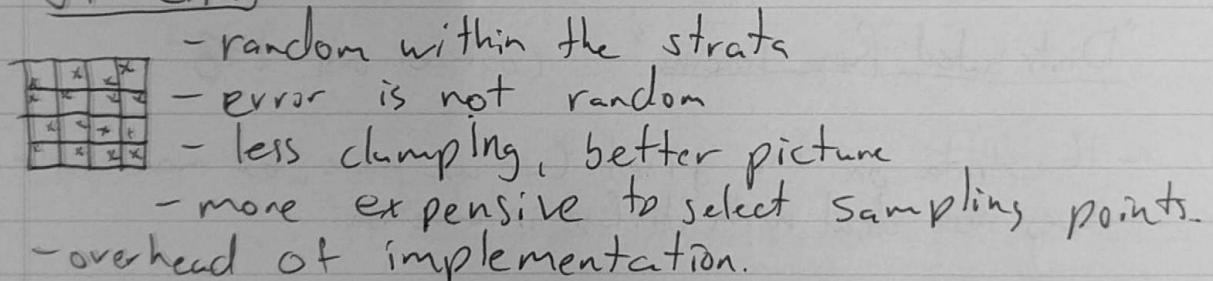 - random within the strata
- error is not random
- less clumping, better picture
- more expensive to select sampling points.
- overhead of implementation.